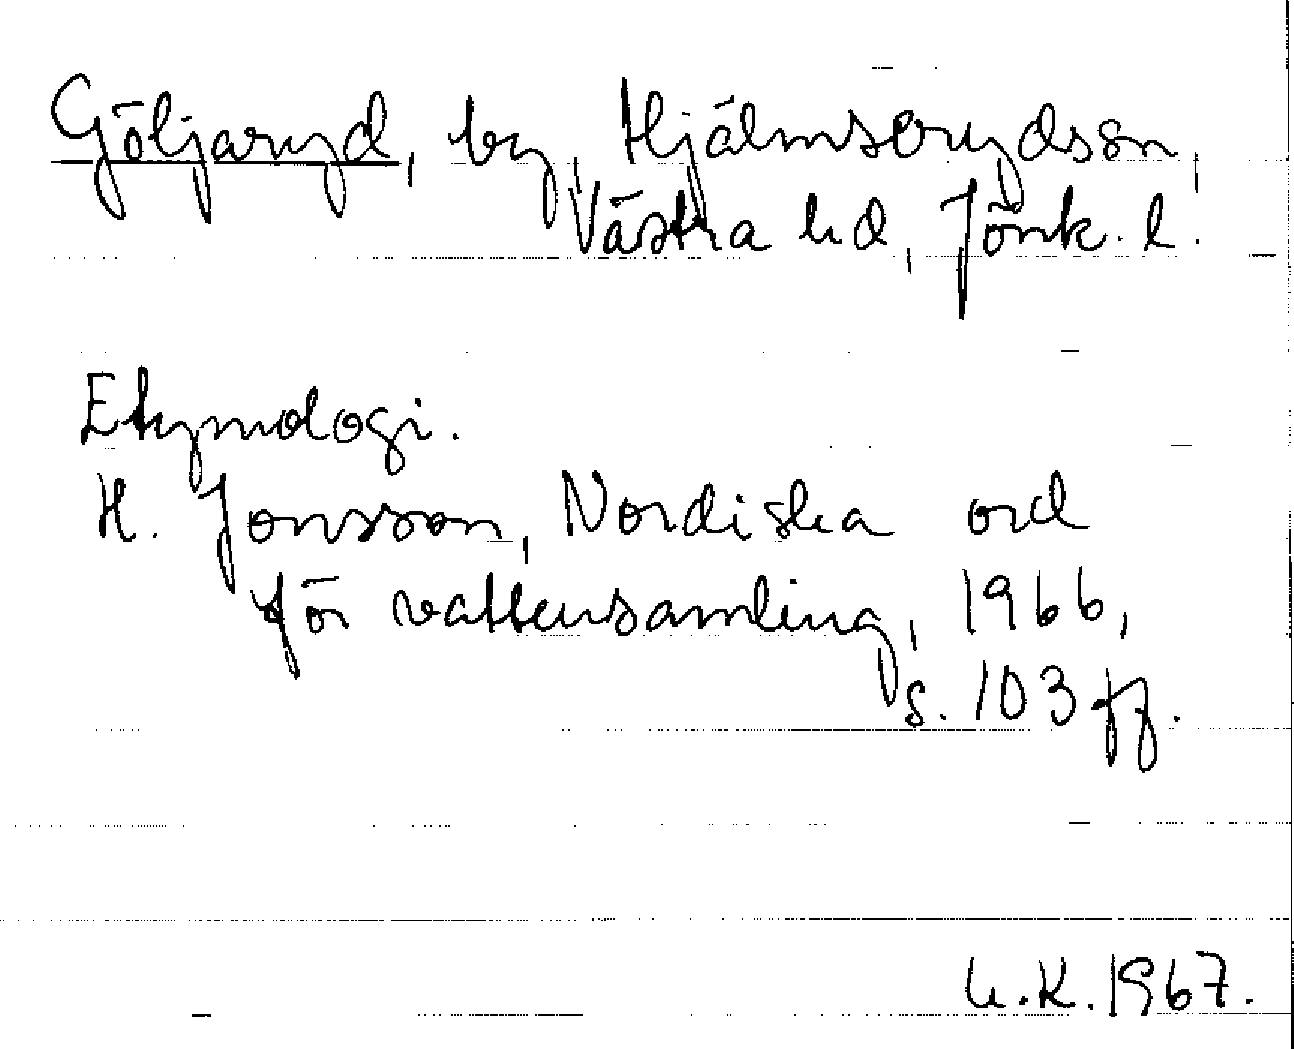 Göljaryd, by, Hjälmserydssn,
Västra hd, Jönk. l.
Etymologi.
H. Jonsson, Nordiska ord
för vattensamling, 1966,
s. 103 ff.
1967.